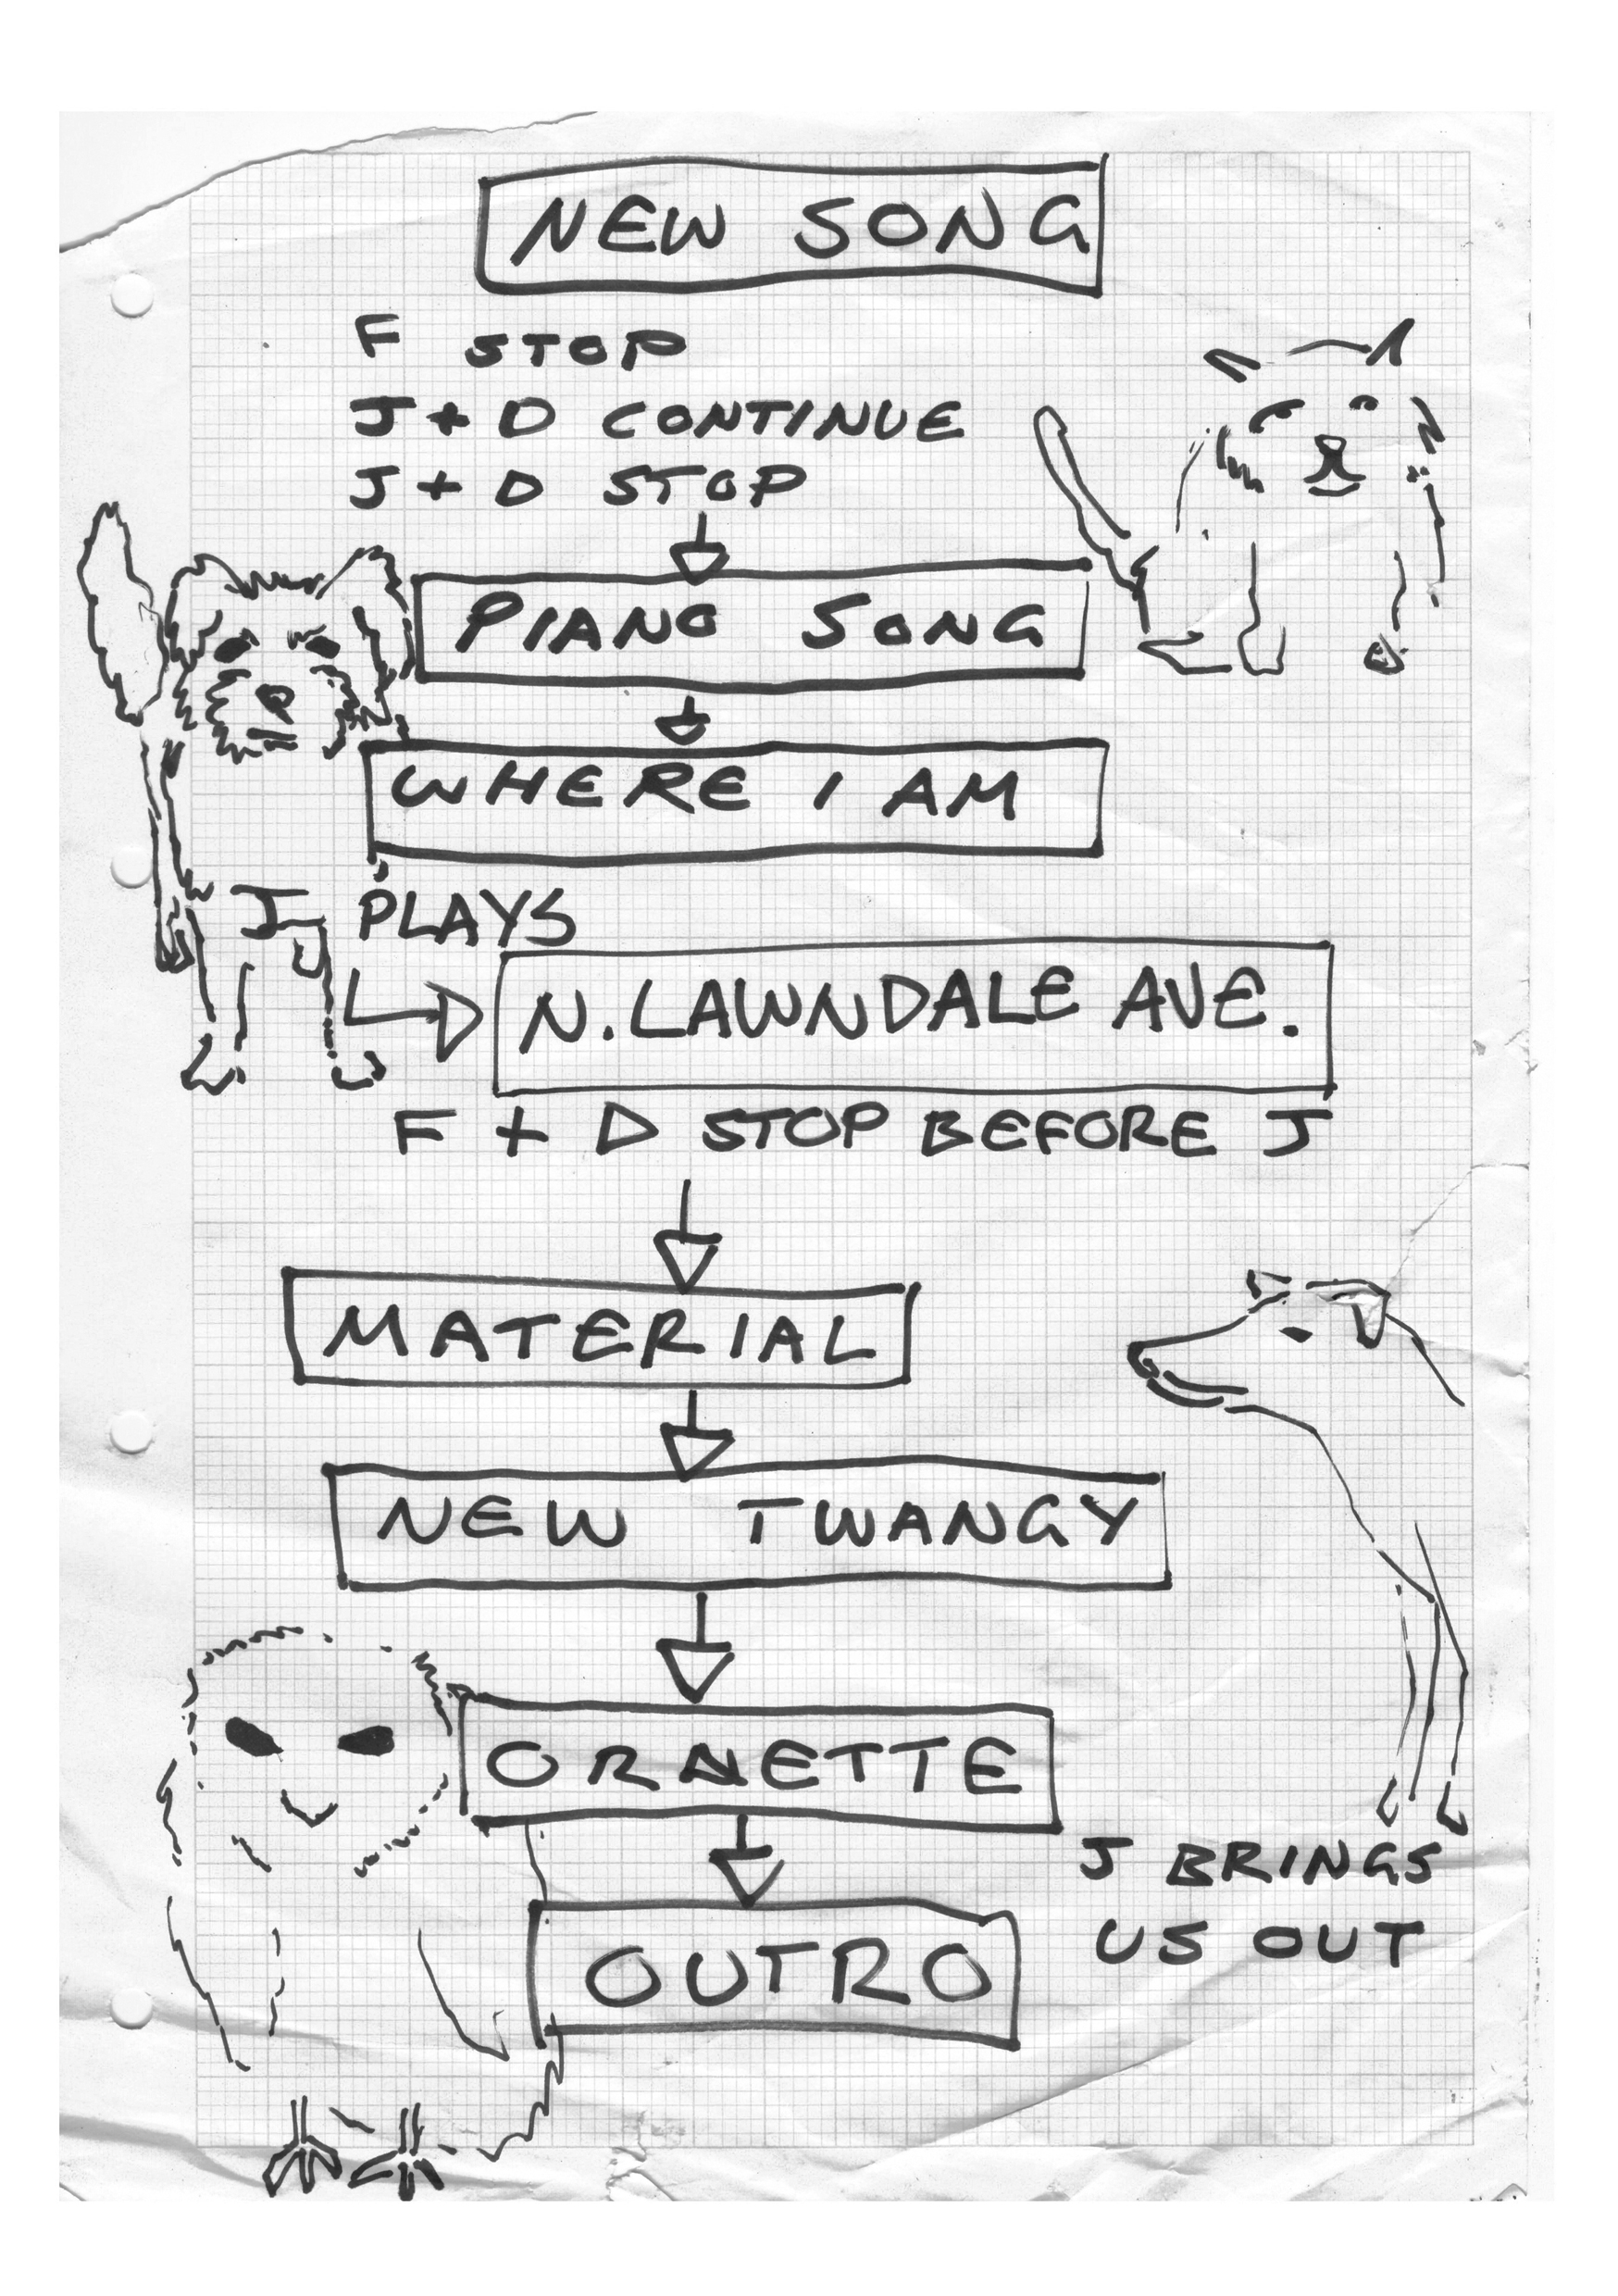 NEW SONG
F STOP
J + D CONTINUE
J + D STOP
PIANO SONG
WHERE I AM
J PLAYS
N. LAWNDALE AVE.
F + D STOP BEFORE J
MATERIAL
NEW TWANGY
ORNETTE
J BRINGS
US OUT
OUTRO